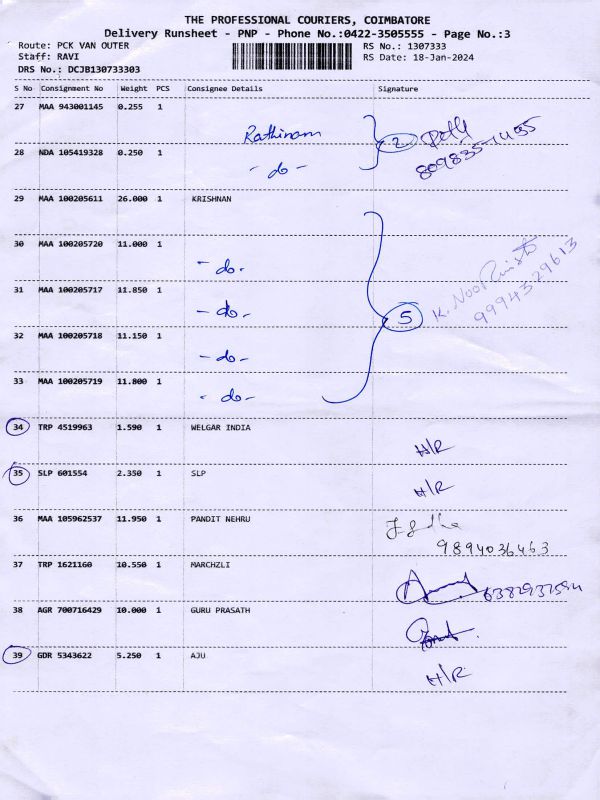 THE PROFESSIONAL COURIERS, COIMBATORE
Delivery Runsheet - PNP - Phone No.:0422-3505555 - Page No.:3
Route: PCK VAN OUTER RS No.: 1307333
Staff: RAVI RS Date: 18-Jan-2024
DRS No.: DCJB130733303
S No Consignment No Weight PCS Consignee Details Signature
27 MAA 943001145 0.255 1 Rathinam
2
28 NDA 105419328 0.250 1 - do -
29 MAA 100205611 26.000 1 KRISHNAN
30 MAA 100205720 11.000 1 - do -
31 MAA 100205717 11.850 1 - do -
5 K. Noor 9994329613
32 MAA 100205718 11.150 1 - do -
33 MAA 100205719 11.800 1 - do -
34 TRP 4519963 1.590 1 WELGAR INDIA H/R
35 SLP 601554 2.350 1 SLP H/R
36 MAA 105962537 11.950 1 PANDIT NEHRU
9894036463
37 TRP 1621160 10.550 1 MARCHZLI
38 AGR 700716429 10.000 1 GURU PRASATH
39 GDR 5343622 5.250 1 AJU H/R